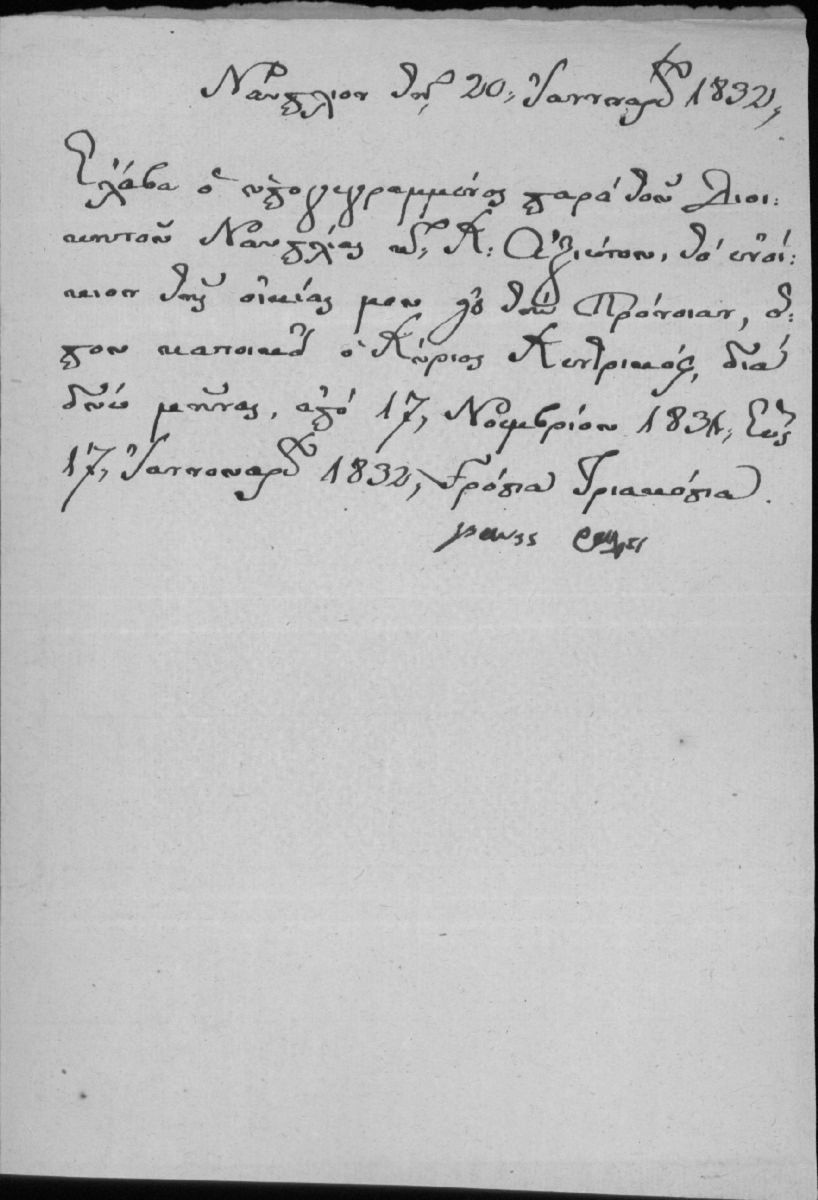 Ναύπλιον τῇ 20, Ἰαννουαρ 1832,
Ἔλαβα ὁ ὑπογεγραμμένος παρὰ τοῦ Διοι:
κητοῦ Ναυπλίας κ: Κ: Ἀξιώτου, τὸ ἐνοί:
κιον τῆς οἰκίας μου εἰς τὴν Πρόνοιαν, ὅ:
που κατοικεῖ ὁ Κύριος
διὰ
δύω μῆνας, ἀπὸ 17, Νοεμβρίου 1831, ἕως
17, Ἰαννουαρ 1832, Γρόσια Τριακόσια.